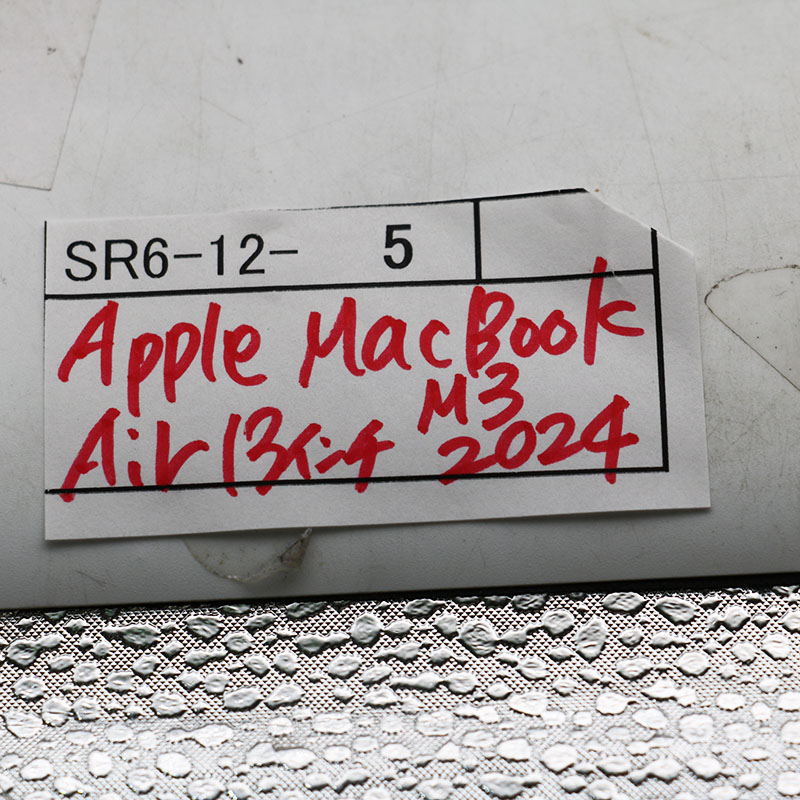 SR6-12- 5
Apple MacBook
Air 13インチ M3 2024